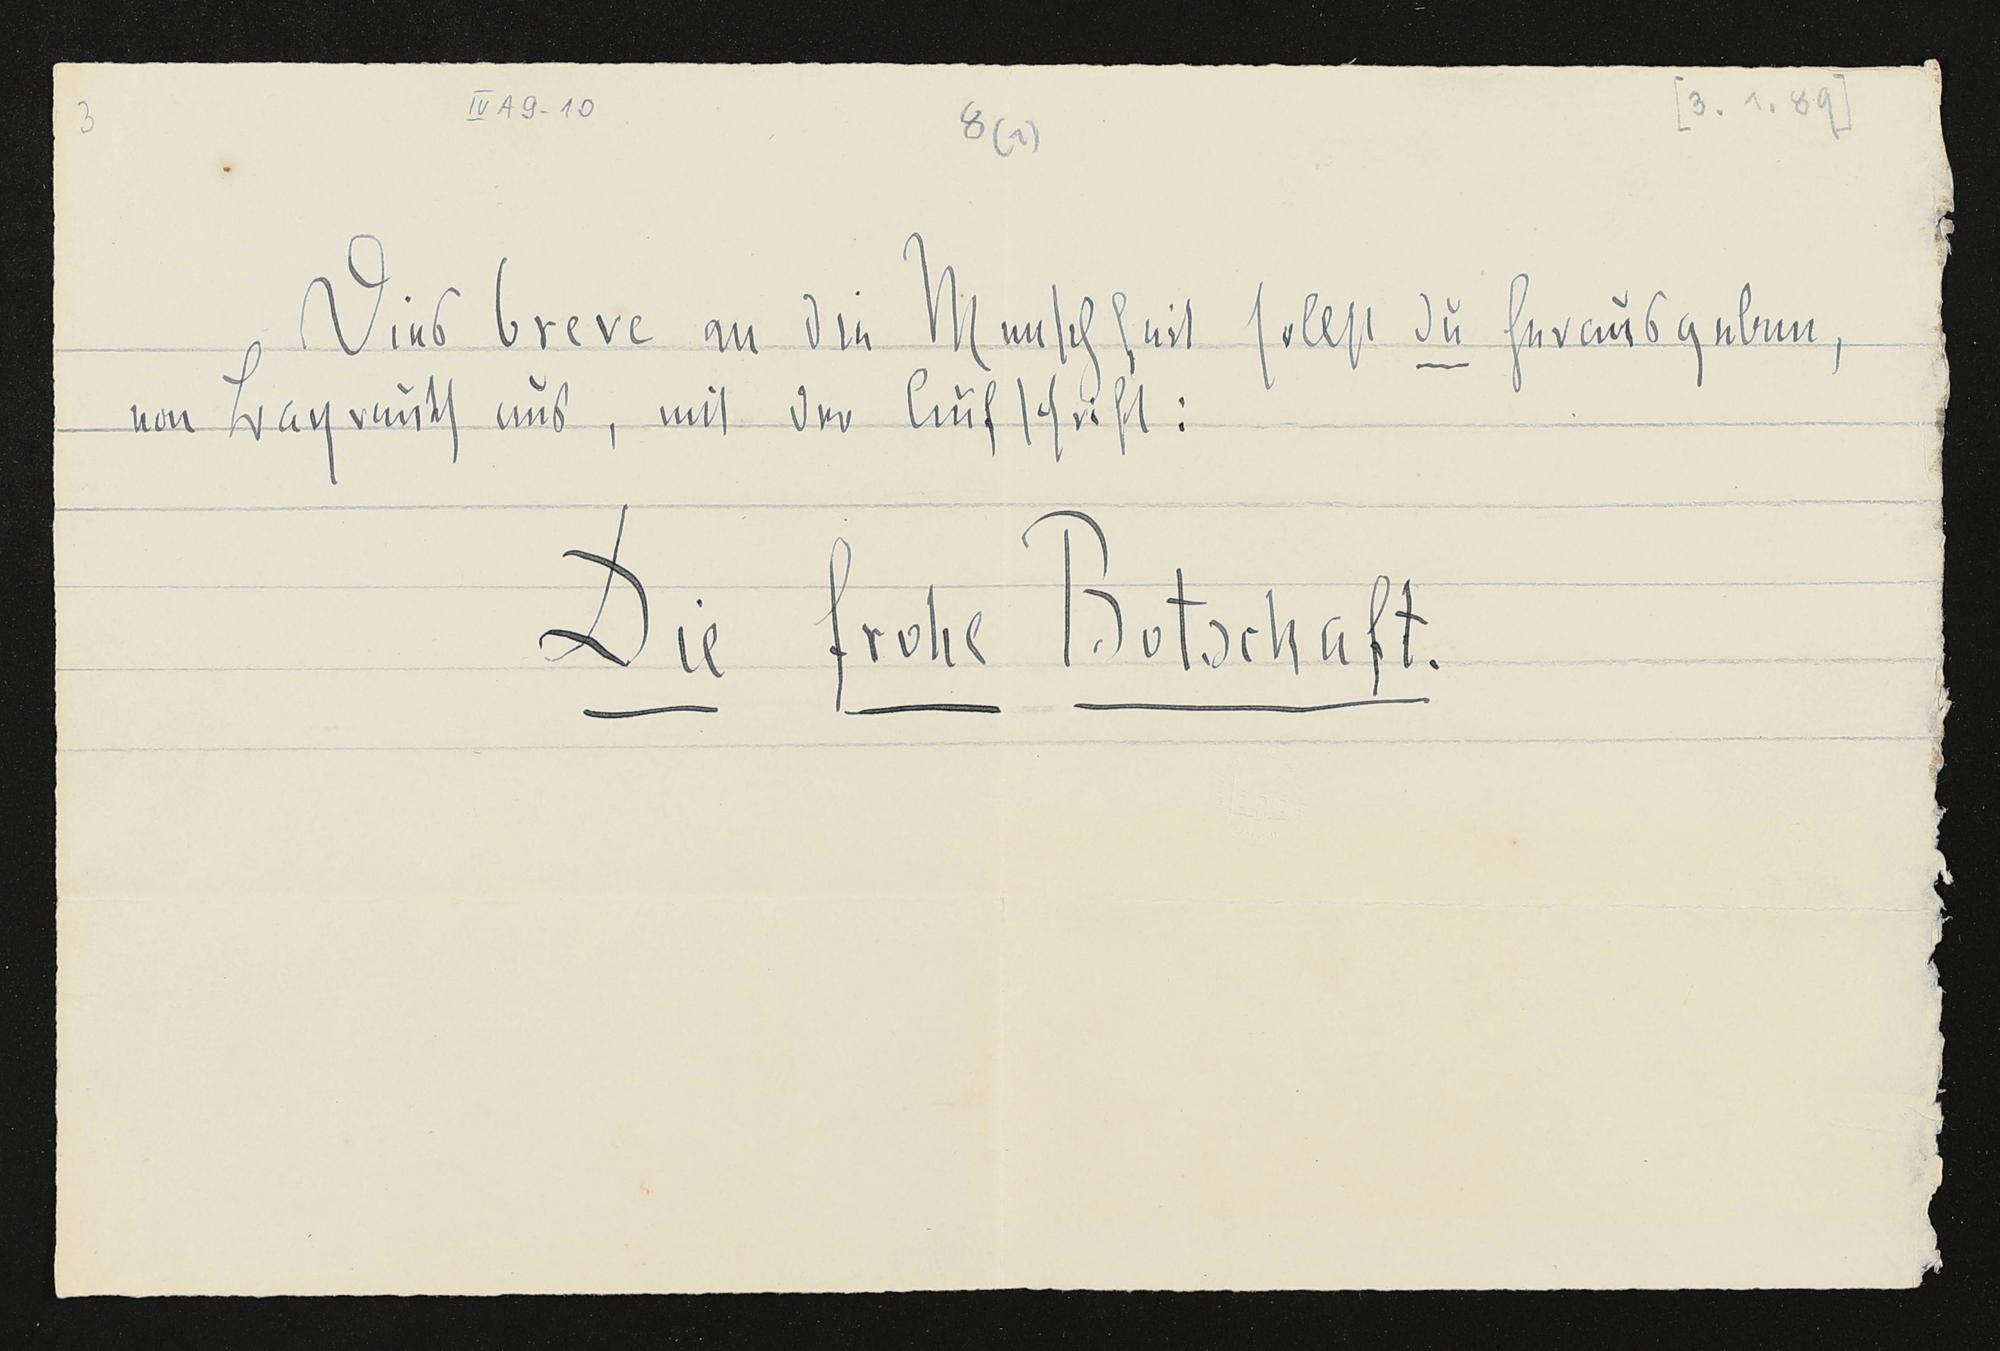 3 IV A 9-10 8 (1) [3. 1. 89]
Dies breve an die Menschheit sollst du herausgeben,
von Bayreuth aus, mit der Aufschrift:
Die frohe Botschaft.